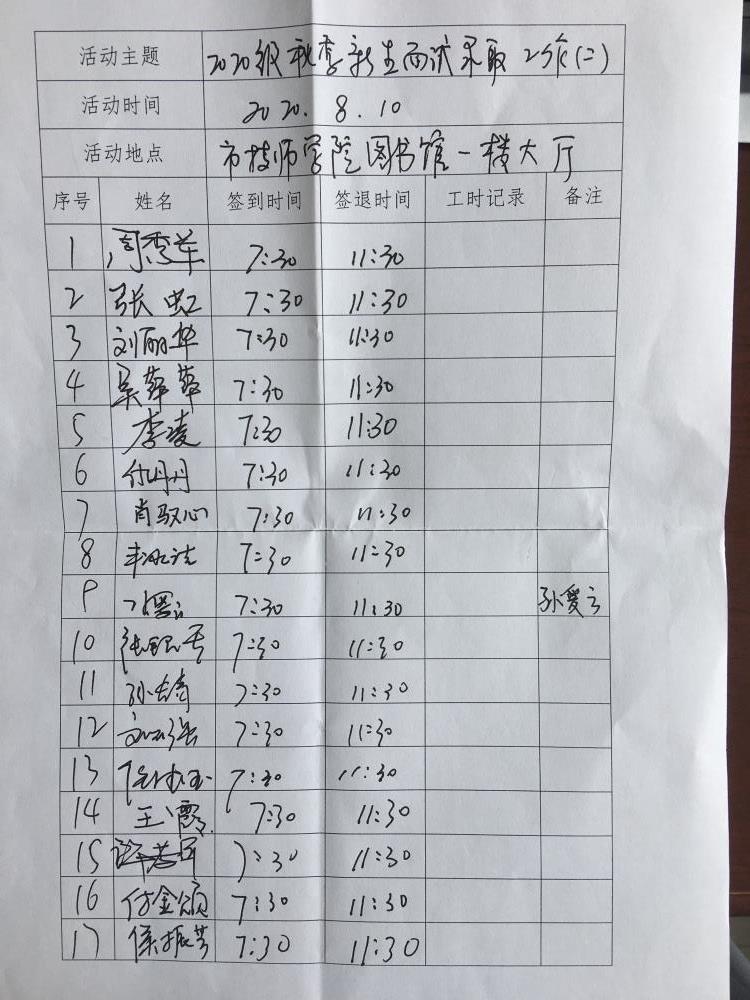 活动主题 2020级秋季新生面试录取工作(二)
活动时间 2020.8.10
活动地点 市技师学院图书馆一楼大厅
序号 姓名 签到时间 签退时间 工时记录 备注
1 周秀华 7:30 11:30
2 张虹 7:30 11:30
3 刘丽华 7:30 11:30
4 吴萍萍 7:30 11:30
5 李凌 7:30 11:30
6 付丹丹 7:30 11:30
7 肖驭心 7:30 11:30
8 7:30 11:30
9 7:30 11:30 孙爱云
10 7:30 11:30
11 7:30 11:30
12 7:30 11:30
13 7:30 11:30
14 王霞 7:30 11:30
15 7:30 11:30
16 付金颂 7:30 11:30
17 侯振芳 7:30 11:30